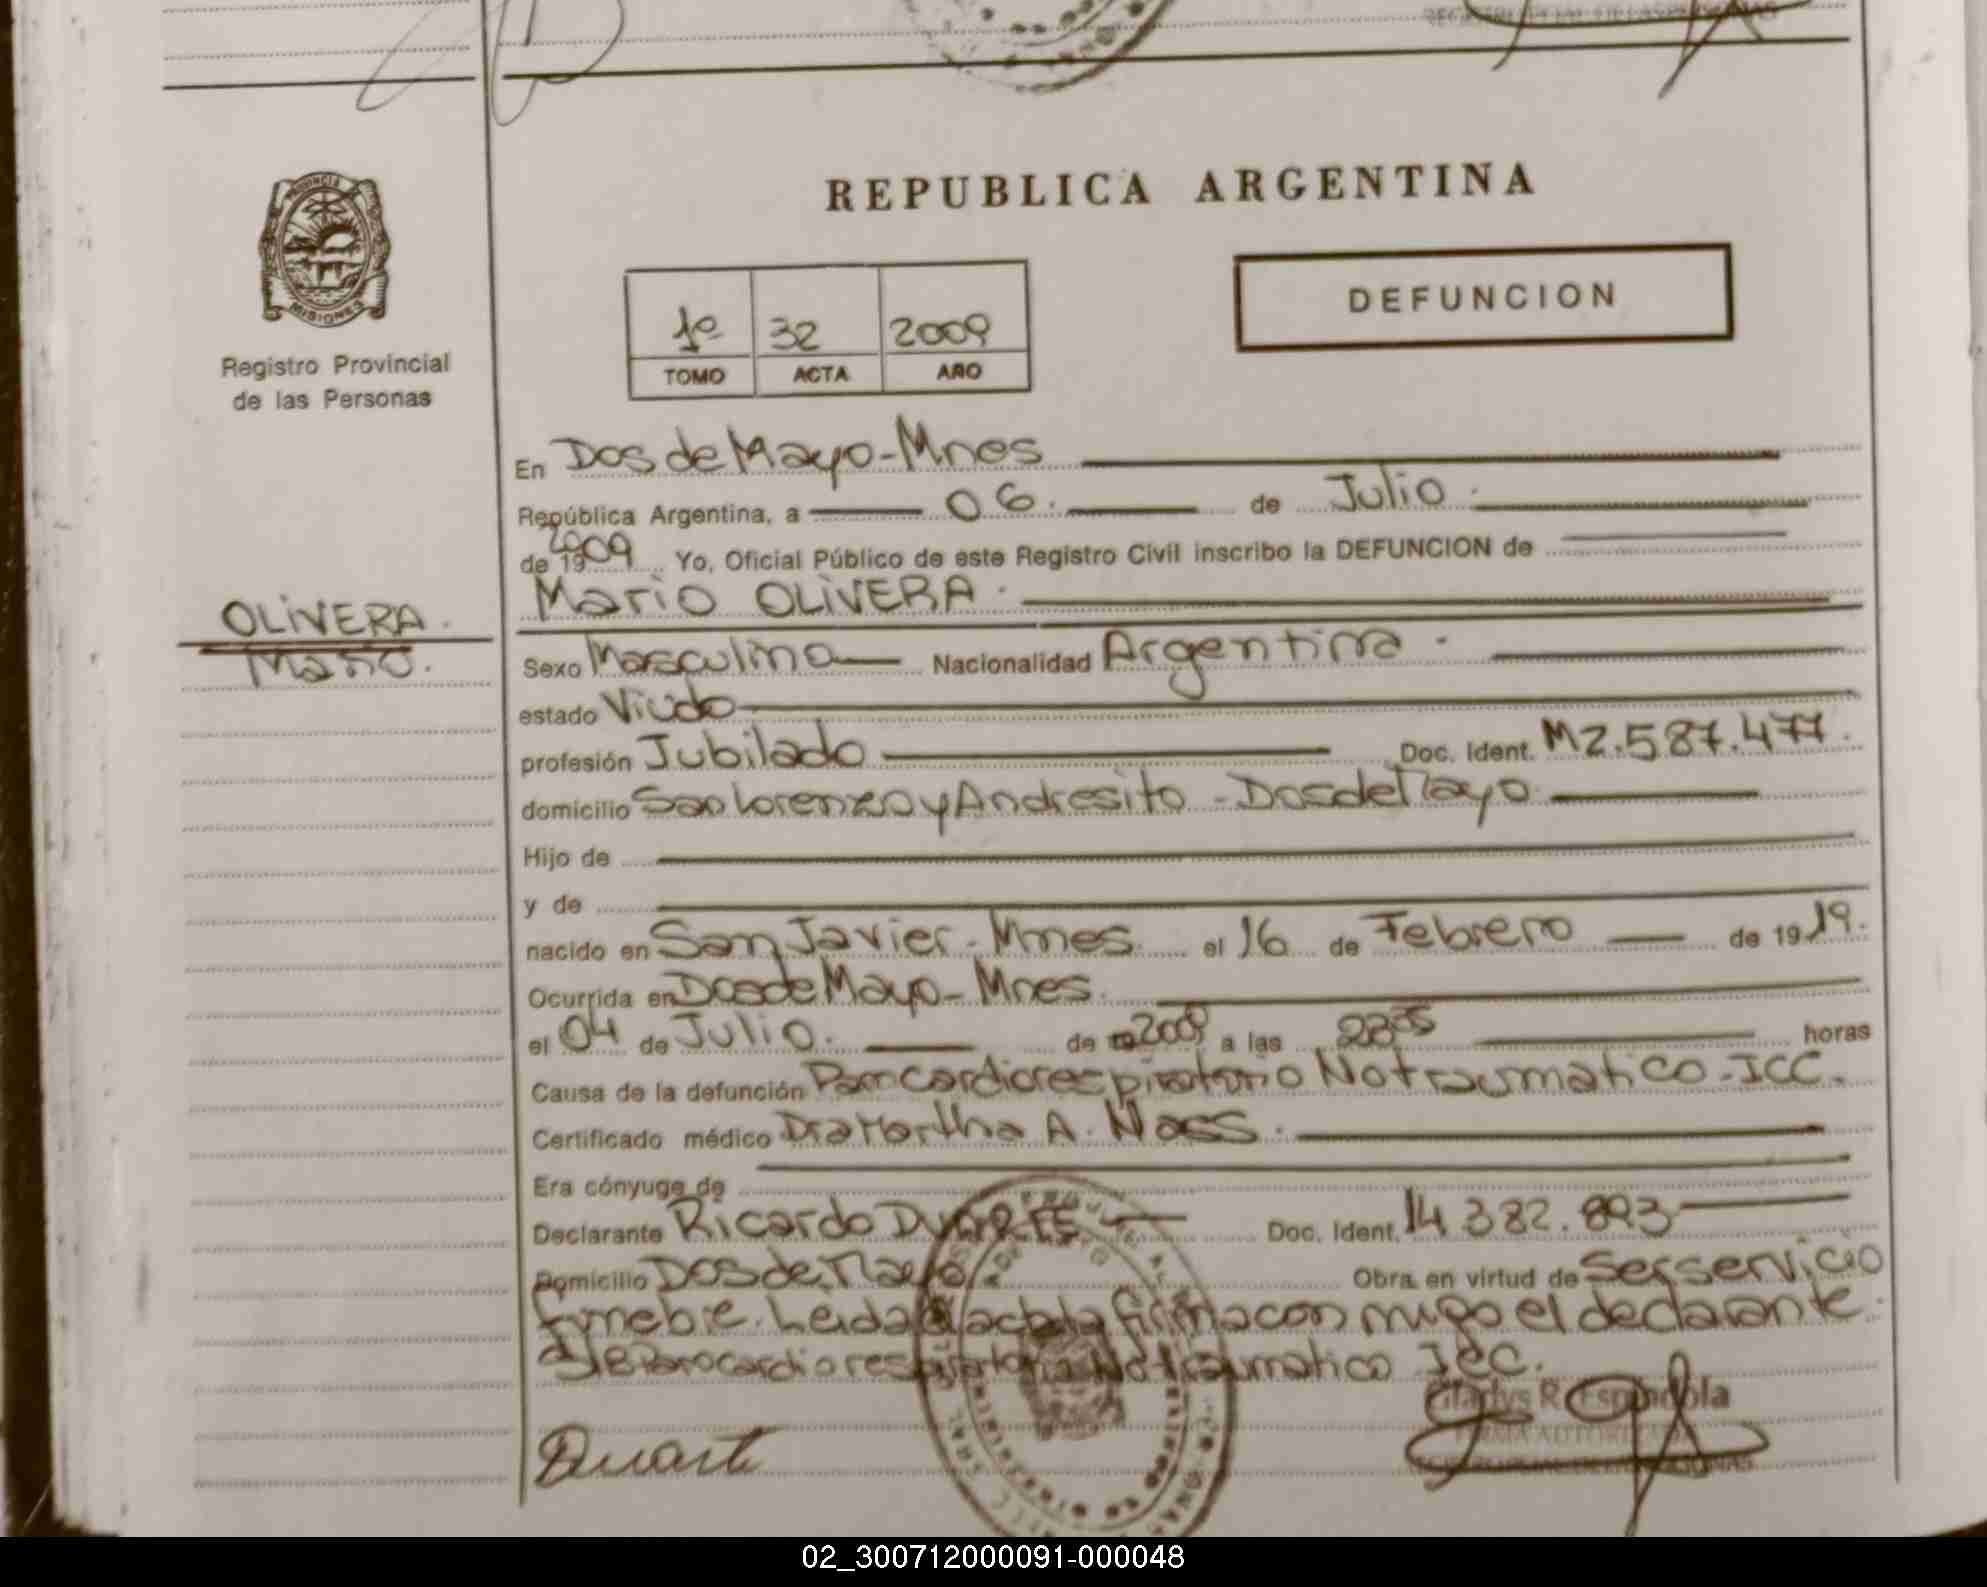 REPUBLICA ARGENTINA
PROVINCIA
MISIONES
Registro Provincial
de las Personas
1º 32 2009
TOMO ACTA AÑO
DEFUNCION
En Dos de Mayo-Mnes
República Argentina, a 06. de Julio.
de 19 2009 Yo, Oficial Público de este Registro Civil inscribo la DEFUNCION de
Mario OLIVERA.
OLIVERA.
Mario.
Sexo Masculino Nacionalidad Argentina.
estado Viudo
profesión Jubilado Doc. Ident. M2.587.477.
domicilio San Lorenzo y Andresito - Dos de Mayo
Hijo de
y de
nacido en San Javier - Mnes. el 16 de Febrero de 1919.
Ocurrida en Dos de Mayo - Mnes.
el 04 de Julio. de 2009 a las 23 05 horas
Causa de la defunción Paro cardiorespiratorio No traumatico - ICC.
Certificado médico Dra Martha A. Nass.
Era cónyuge de
Declarante Ricardo DUARTE Doc. Ident. 14.382.893
Domicilio Dos de Mayo Obra en virtud de Ser servicio
funebre. Leida el acta la firma con migo el declarante.
Paro cardio respiratorio No traumatico ICC.
Gladys R. Espindola
FIRMA AUTORIZADA
Duarte
02_300712000091-000048